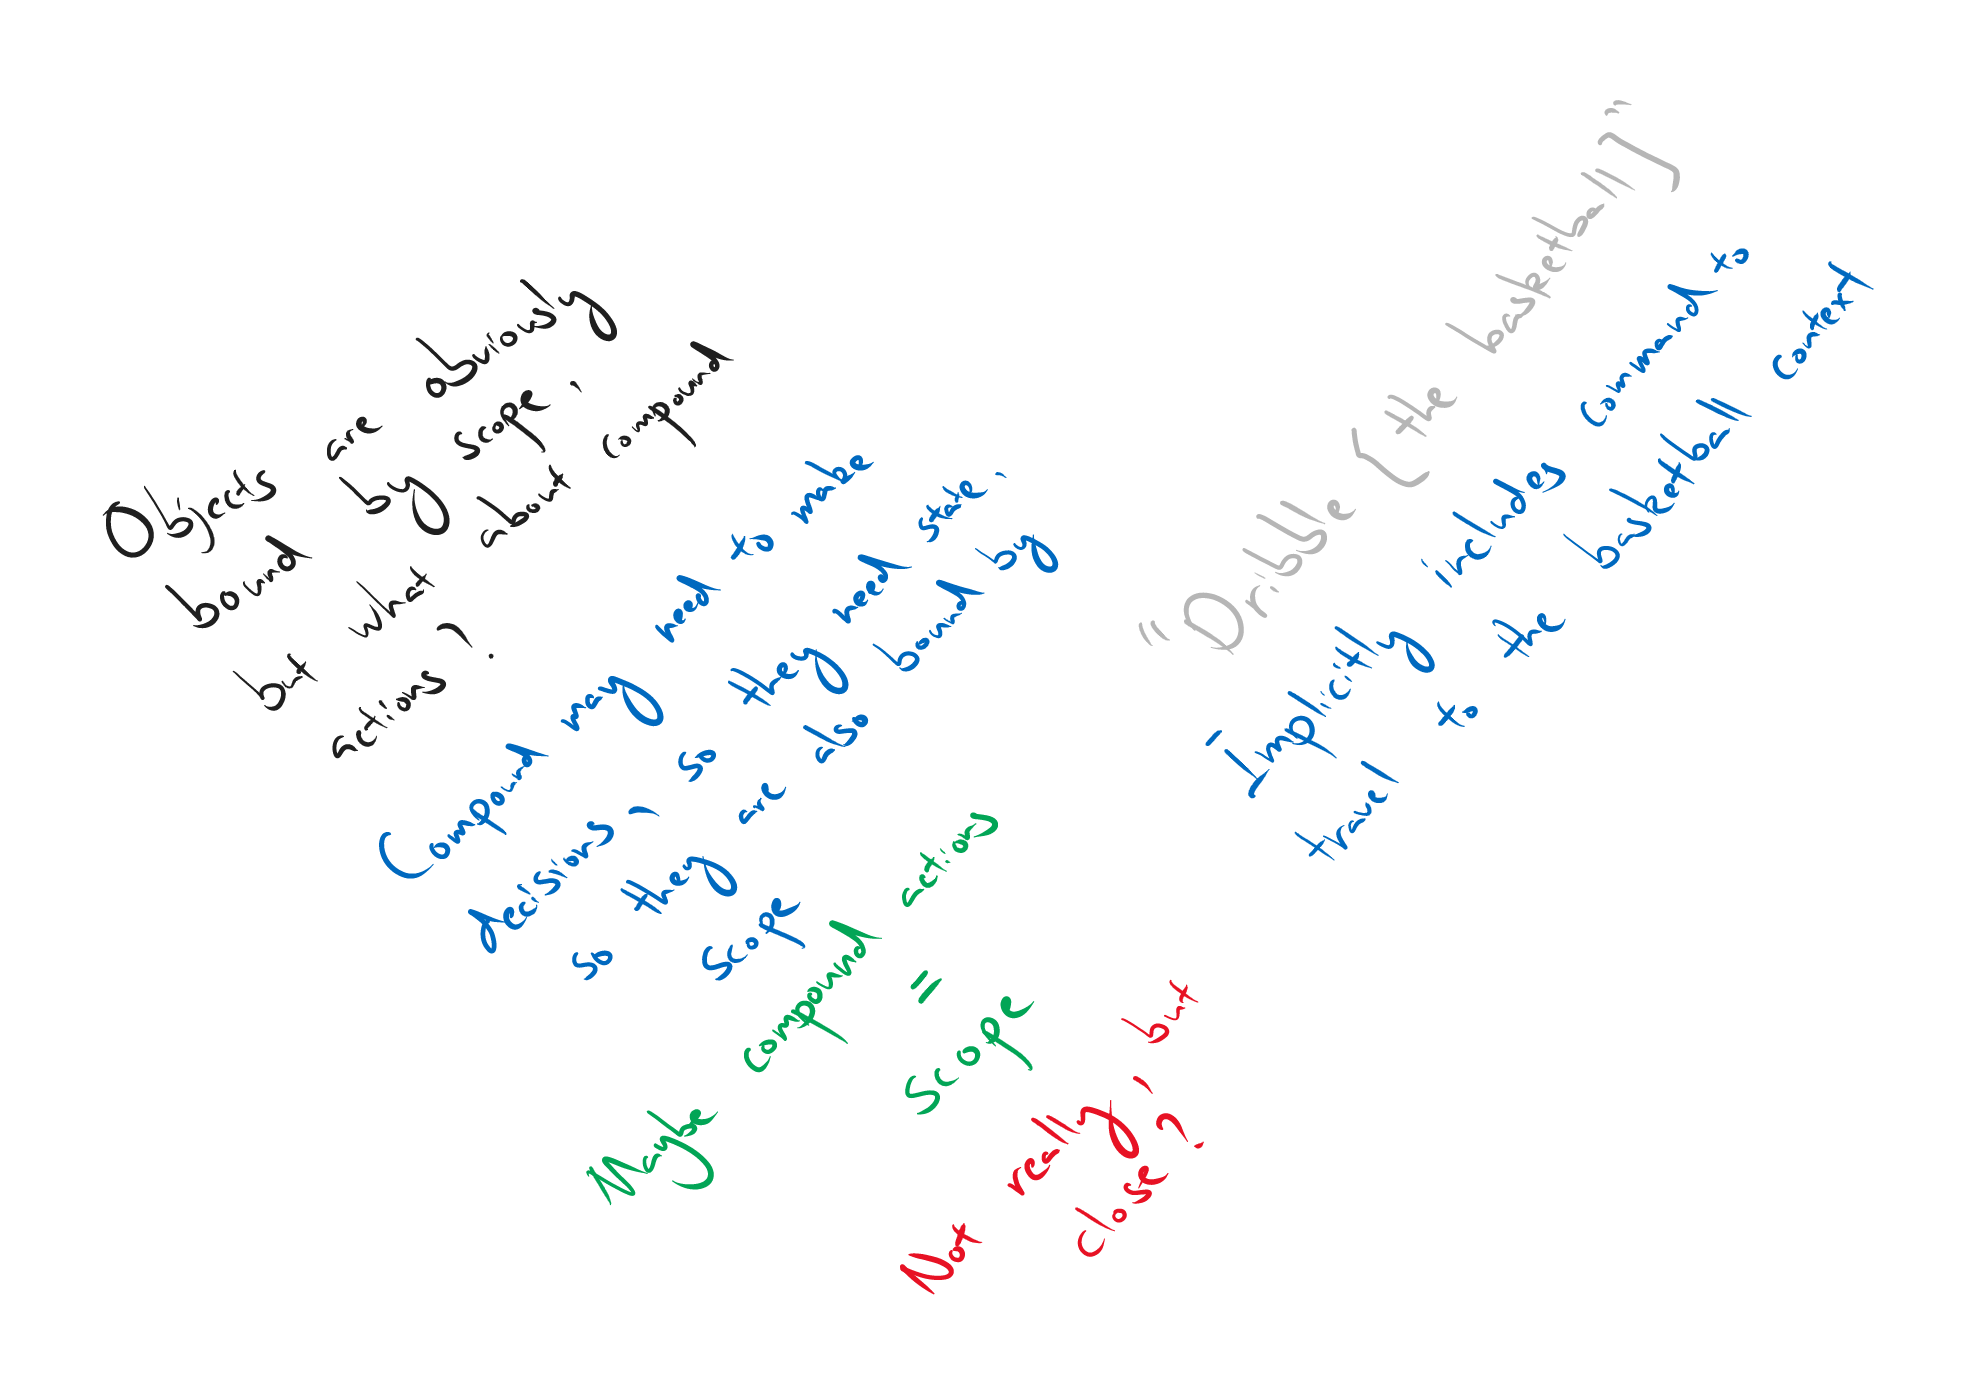 Objects are obviously
bound by scope,
but what about compound
actions?
Compound may need to make
decisions, so they need state,
so they are also bound by
scope
Maybe compound actions
=
scope
Not really, but
close?
"Dribble [the basketball]"
- Implicitly includes command to
travel to the basketball context